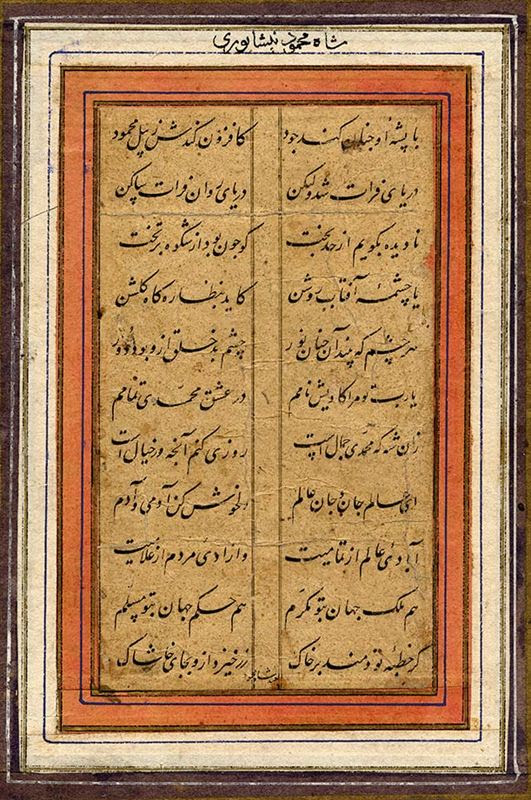 شاه محمود نیشابوری
با پشه او چنان کند جود کافزون کندش ز پیل محمود
دریای فرات شد ولیکن دریای روان فرات ساکن
نادیده بگویم از جد بخت کو چون بود از شکوه بر تخت
یا چشمهٔ آفتاب روشن کاید بنظاره گاه گلشن
هر چشم که بیند آن چنان نور چشم بد خلق ازو بود دور
یارب تو مرا کاویس نامم در عشق محمدی تمامم
زان شه که محمدی جمال است روزی کنم آنچه در خیال است
ای عالم جان و جان عالم دلخوش کن آدمی و آدم
آبادی عالم از تمامیت وازادی مردم از غلامیت
هم ملک جهان بتو مکرم هم حکم جهان بتو مسلم
گر خطبهٔ تو دمند بر خاک زر خیزد ازو بجای خاشاک